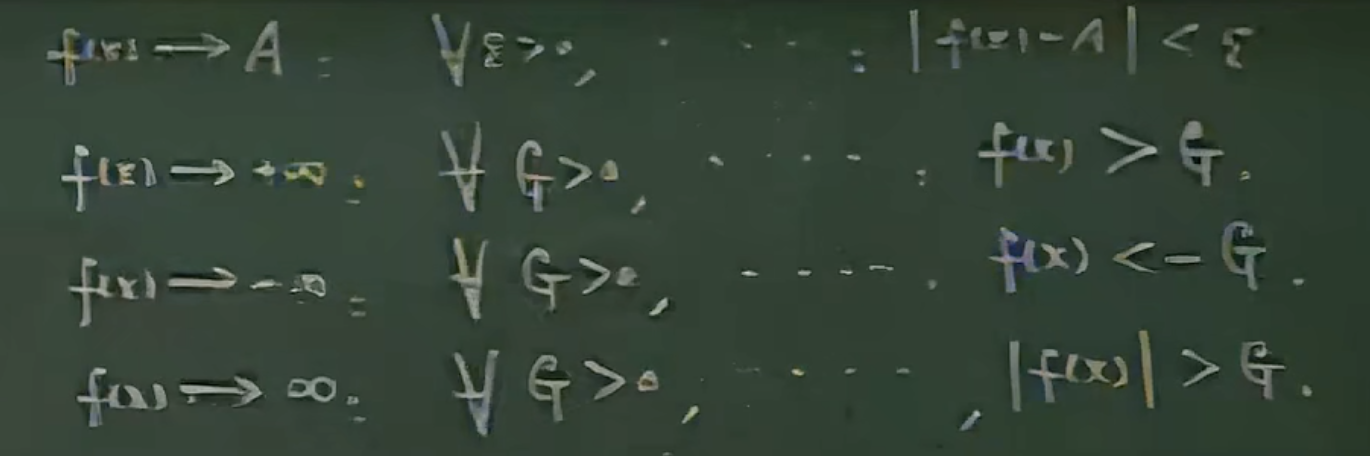 f(x) → A : ∀ ε > 0, · · · · : |f(x) - A| < ε
f(x) → +∞ : ∀ G > 0, · · · · : f(x) > G.
f(x) → -∞ : ∀ G > 0, · · · · . f(x) < -G.
f(x) → ∞ : ∀ G > 0, · · · · , |f(x)| > G.